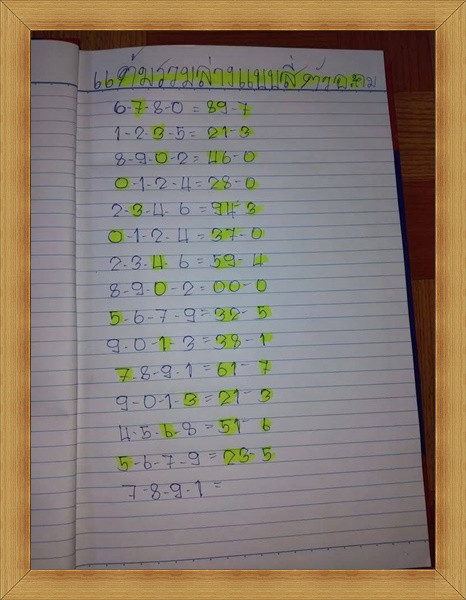 แต้มรวมล่างแบบสี่ตัวคะคม
6-7-8-0 = 89-7
1-2-3-5 = 21-3
8-9-0-2 = 46-0
0-1-2-4 = 28-0
2-3-4-6 = 94-3
0-1-2-4 = 37-0
2-3-4-6 = 59-4
8-9-0-2 = 00-0
5-6-7-9 = 32-5
9-0-1-3 = 38-1
7-8-9-1 = 61-7
9-0-1-3 = 21-3
4-5-6-8 = 51-6
5-6-7-9 = 23-5
7-8-9-1 =